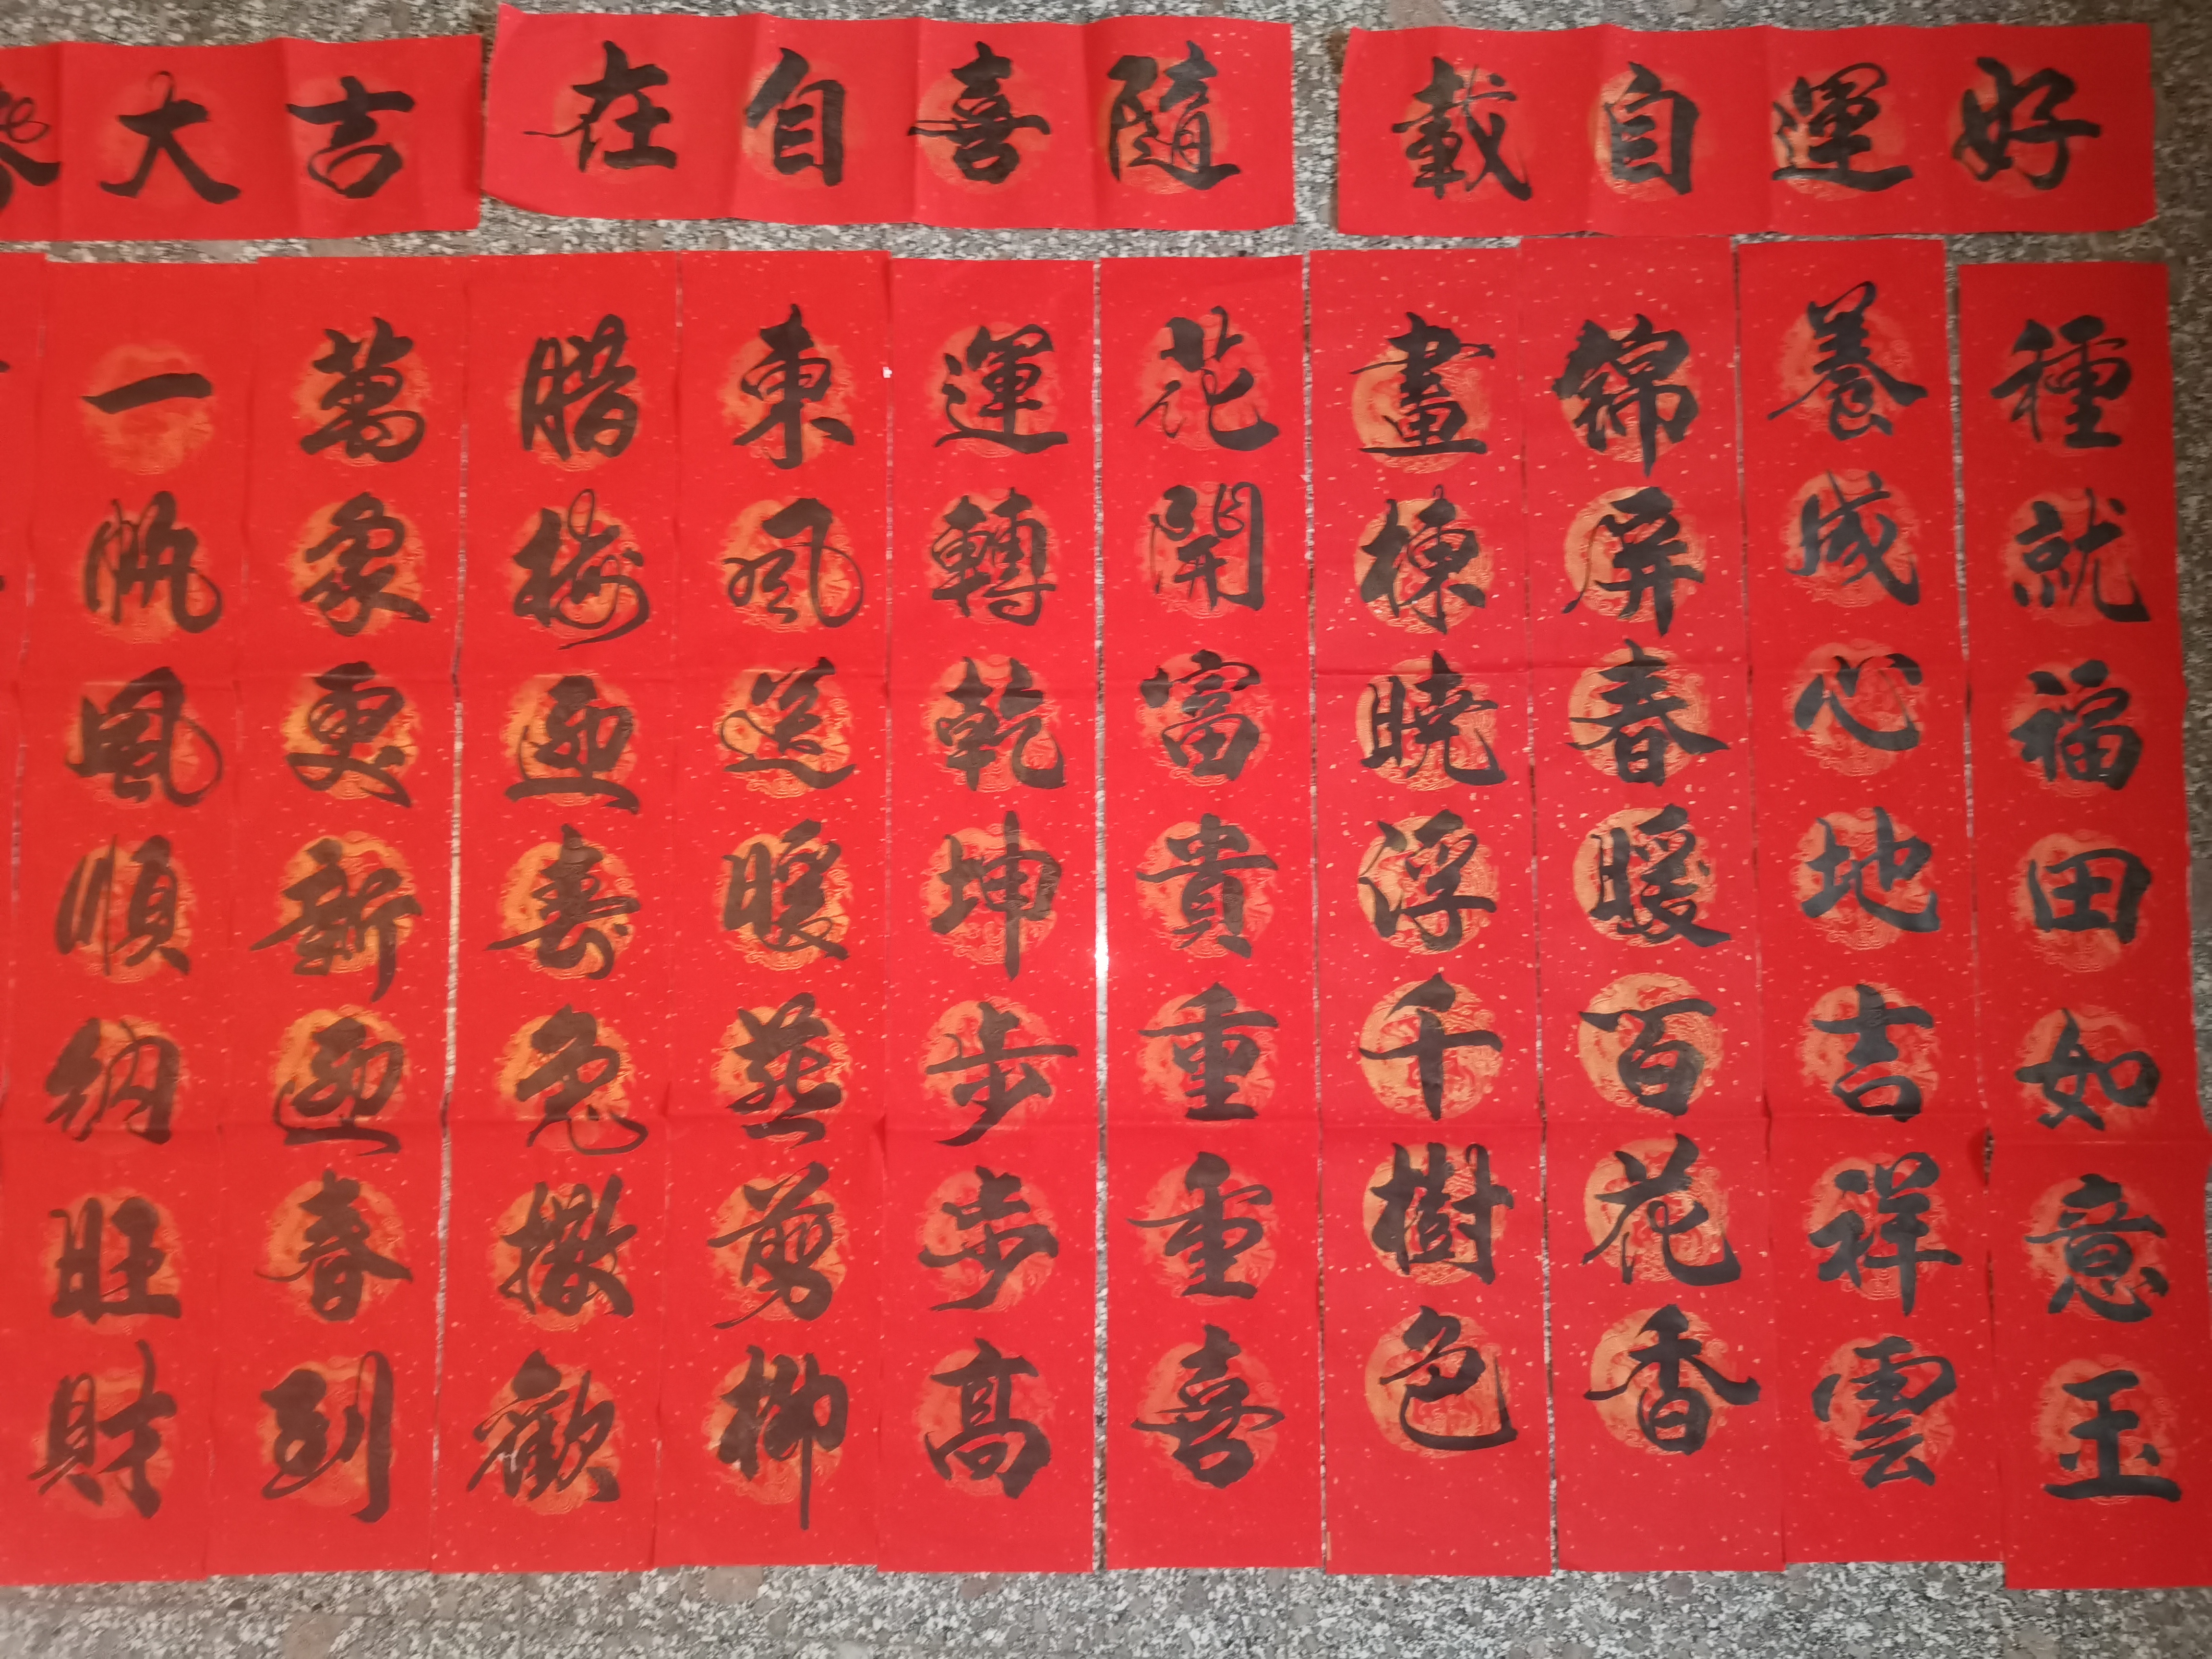 好運自載
隨喜自在
大吉
種就福田如意玉
養成心地吉祥雲
錦屏春暖百花香
畫棟曉浮千樹色
花開富貴重重喜
運轉乾坤步步高
東風送暖燕剪柳
腊梅迎春兔撒歡
萬象更新迎春到
一帆風順納旺財